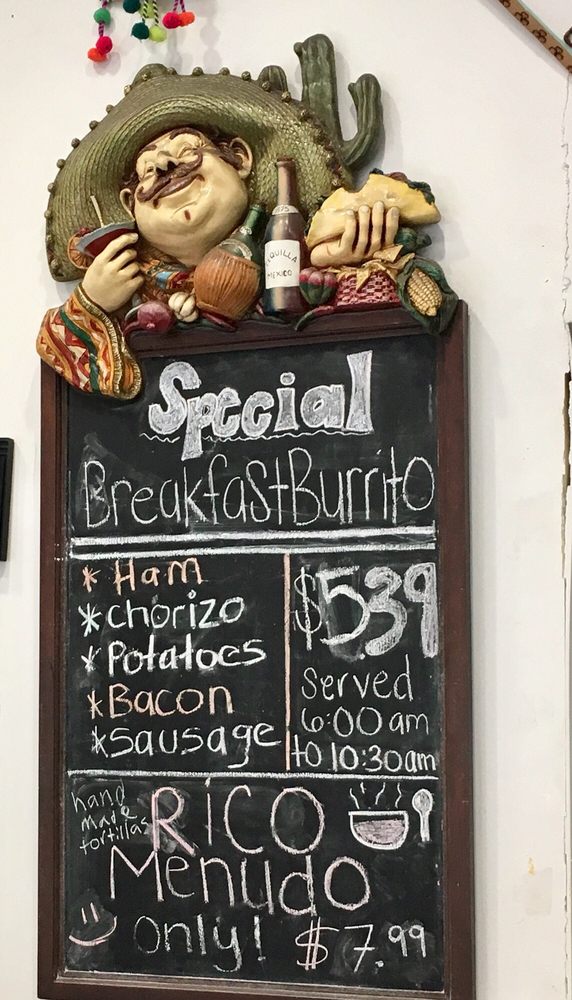 TEQUILLA
MEXICO
Special
Breakfast Burrito
* Ham
* chorizo
* Potatoes
* Bacon
* sausage
$5.39
served
6:00 am
to 10:30am
hand
made
tortillas
RICO
Menudo
only! $7.99